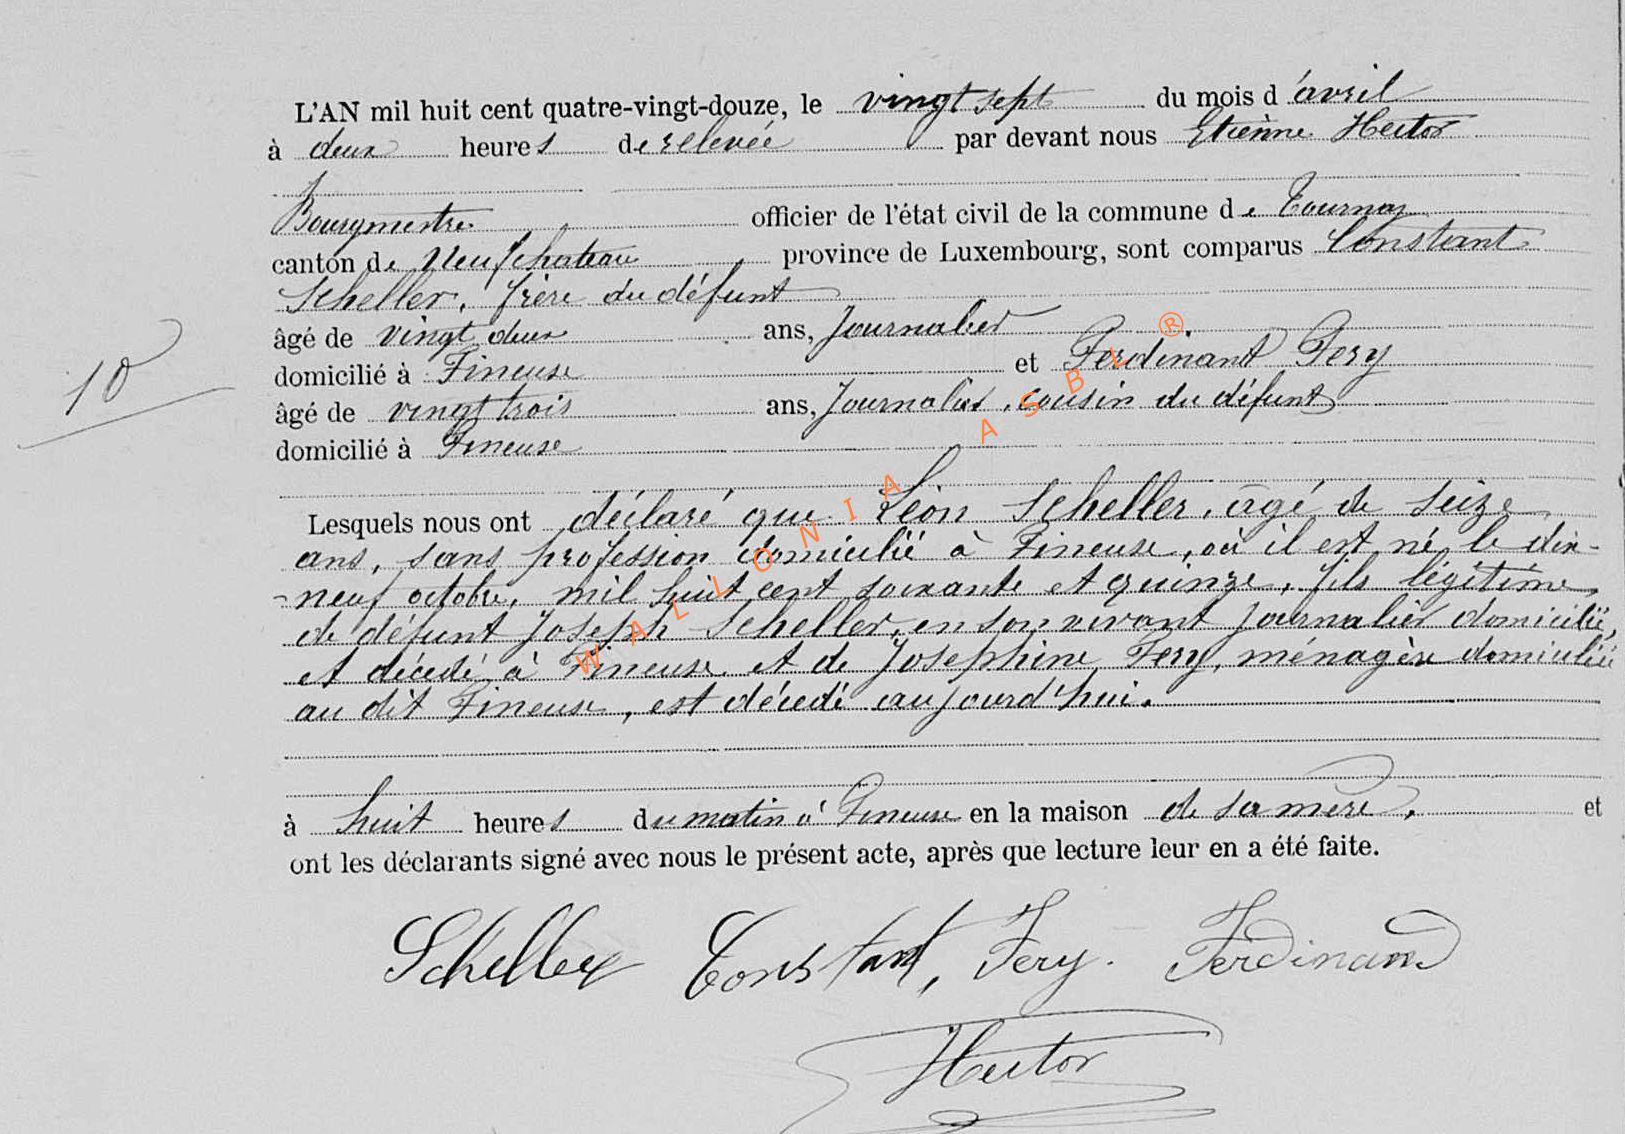 L'AN mil huit cent quatre-vingt-douze, le vingt sept du mois d'avril
à deux heures de relevée par devant nous Etienne Hector
Bourgmestre officier de l'état civil de la commune de Tournay
canton de Neufchateau province de Luxembourg, sont comparus Constant
Scheller, frère du défunt
âgé de vingt deux ans, Journalier
domicilié à Fineuse et Ferdinant Fery
âgé de vingt trois ans, Journalier, cousin du défunt
domicilié à Fineuse
10
Lesquels nous ont déclaré que Léon Scheller, âgé de seize
ans, sans profession domicilié à Fineuse, où il est né le dix-
-neuf octobre, mil huit cent soixante et quinze, fils légitime
de défunt Joseph Scheller, en son vivant journalier domicilié,
et décédé à Fineuse et de Josephine Fery, ménagère domiciliée
au dit Fineuse, est décédé aujourd'hui.
à huit heures du matin à Fineuse en la maison de sa mère, et
ont les déclarants signé avec nous le présent acte, après que lecture leur en a été faite.
Scheller Constant, Fery. Ferdinand
Hector
WALLONIA ASBL ®